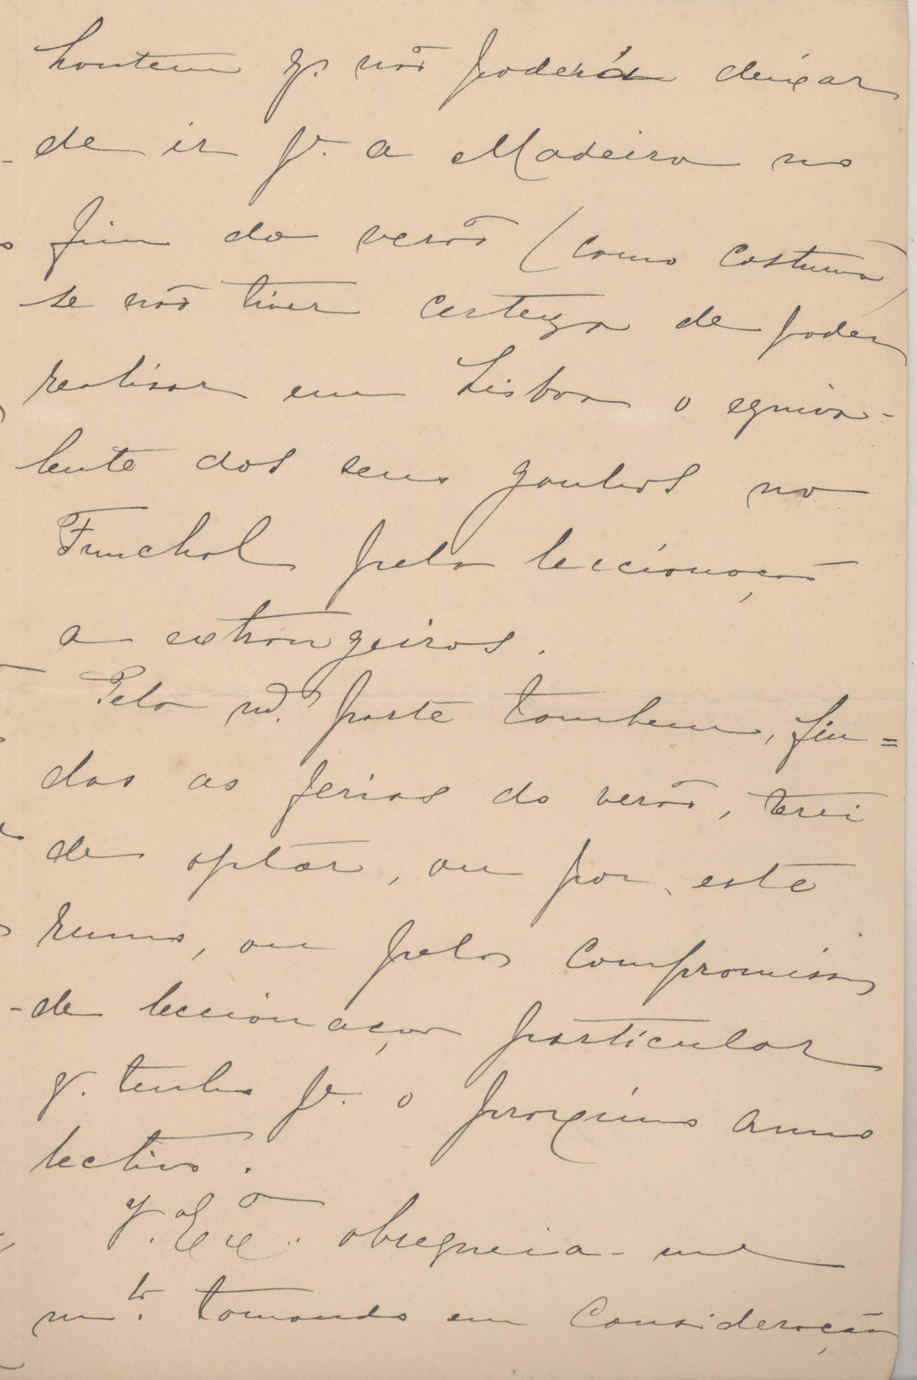 hontem q. não poderá deixar
de ir p.ª a Madeira no
fim do verão (como costuma)
se não tiver certeza de poder
realisar em Lisboa o equiva-
lente dos seus ganhos no
Funchal pela leccionação
a extrangeiros.
Pela m.ª parte tambem, fin=
das as ferias do verão, terei
de optar, ou por este
rumo, ou pelos compromissos
de leccionação particular
q. tenho p.ª o proximo anno
lectivo.
V. Ex.ª obsequeia-me
m.to tomando em consideração